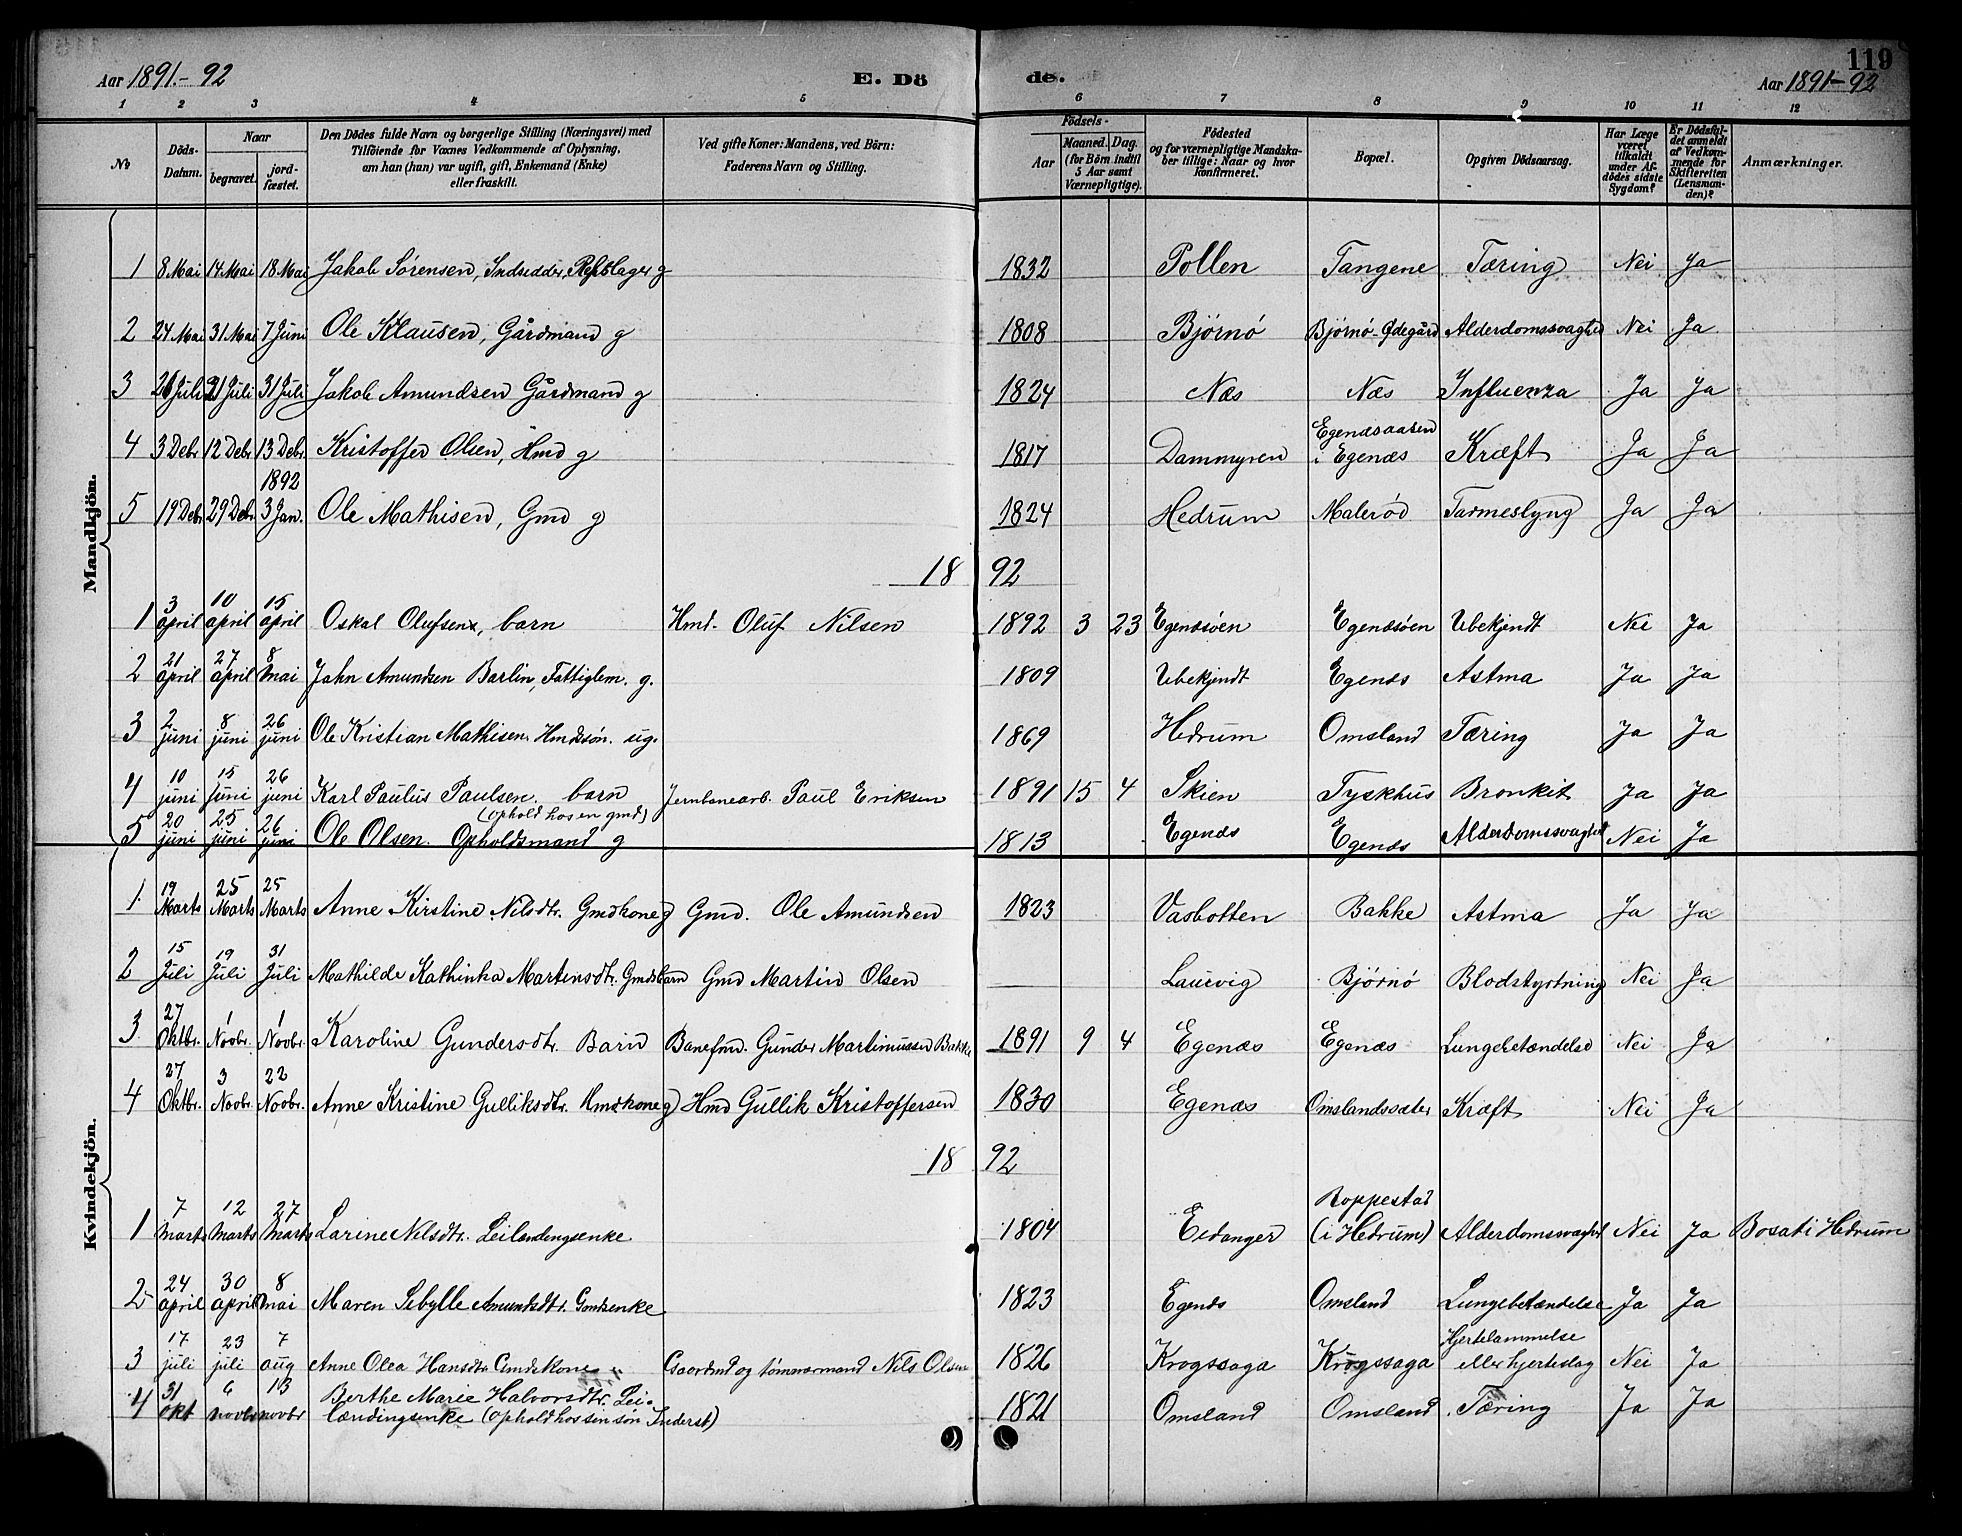 Aar 1891.-92 E. Dö de. 119
Aar 1891-92
1 2 3 4 5 6 7 8 9 10 11 12
No
Döds-Datum.
Naar
begravet.
jord-fæstet.
Den Dödes fulde Navn og borgerlige Stilling (Næringsvei) med
Tilföiende for Voxnes Vedkommende af Oplysning,
om han (hun) var ugift, gift, Enkemand (Enke)
eller fraskilt.
Ved gifte Koner: Mandens, ved Börn:
Faderens Navn og Stilling.
Födsels-
Aar
Maaned. Dag.
(for Börn indtil
5 Aar samt
Værnepligtige).
Födested
og for værnepligtige Mandska-
ber tillige: Naar og hvor
konfirmeret.
Bopæl.
Opgiven Dödsaarsag.
Har Læge
været
tilkaldt
under Af-
dödes sidste
Sygdom?
Er Dödsfal-
det anmeldt
af Vedkom-
mende for
Skifteretten
(Lensman-
den)?
Anmærkninger.
Mandkjön.
1 8 Mai 14 Mai 18 Mai Jakob Sørensen, Indsidder, Repslager g 1832 Pollen Tangene Tæring Nei Ja
2 24 Mai 31 Mai 7 Juni Ole Klausen, Gårdmand g 1808 Bjørnø Bjørnø-Ødegård Alderdomssvaghed Nei Ja
3 26 Juli 31 Juli 31 Juli Jakob Amundsen Gårdmand g 1824 Næs Næs Influenza Ja Ja
4 3 Debr 12 Debr 13 Debr Kristoffer Olsen, Hmd g 1817 Dammyren Egenæsaasen i Egenæs Kræft Ja Ja
1892
5 19 Debr 29 Debr 3 Jan. Ole Mathisen, Gmd g 1824 Hedrum Malerød Tarmeslyng Ja Ja
1892
1 3 april 10 april 15 april Oskal Olufsen, barn Hmd. Oluf Nilsen 1892 3 23 Egenæsøen Egenæsøen Ubekjendt Nei Ja
2 21 april 27 april 8 mai John Amundsen Barlin, Fattiglem. g. 1809 Ubekjendt Egenæs Astma Ja Ja
3 2 juni 8 juni 26 juni Ole Kristian Mathisen Hmdssøn. ug. 1869 Hedrum Omsland Tæring Ja Ja
4 10 juni 15 juni 26 juni Karl Paulus Paulsen. barn Jernbanearb. Paul Eriksen 1891 15 4 Skien Tyskhus Bronkit Ja Ja
(ophold hos en gmd)
5 20 juni 25 juni 26 juni Ole Olsen. Opholdsmand g 1813 Egenæs Egenæs Alderdomssvaghed Nei Ja
Kvindekjön.
1 19 Marts 25 Marts 25 Marts Anne Kirstine Nilsdtr. Gmdkone g Gmd. Ole Amundsen 1823 Vasbotten Bakke Astma Ja Ja
2 15 Juli 19 Juli 31 Juli Mathilde Kathinka Martinsdtr. Gmdsbarn Gmd Martin Olsen Laurvig Bjørnø Blodstyrtning Nei Ja
3 27 Oktbr. 1 Novbr. 1 Novbr. Karoline Gundersdtr. Barn Banefm. Gunder Martinussen Bakke 1891 9 4 Egenæs Egenæs Lungebetændelse Nei Ja
4 27 Oktbr. 3 Novbr. 22 Novbr. Anne Kristine Gulliksdtr. Hmdkone g Hmd Gullik Kristoffersen 1830 Egenæs Omslandssæter Kræft Nei Ja
1892
1 7 Marts 12 Marts 27 Marts Larine Nilsdtr. Leilændingsenke 1804 Eidanger Boppestad (i Hedrum) Alderdomssvaghed Nei Ja Bosat i Hedrum
2 24 april 30 april 8 mai Maren Sibylle Amundsdtr. Gmdsenke 1823 Egenæs Omsland Lungebetændelse Ja Ja
3 17 juli 23 juli 7 aug Anne Olea Hansdtr Gmdskone Gaardmd og tømmermand Nils Olsen 1826 Krogssaga Krogssaga Hjertelammelse eller hjerteslag Nei Ja
4 31 okt 6 novbr 13 novbr Berthe Marie Halvorsdtr. Lei-
lændingsenke (ophold hos sin søn Inderst) 1821 Omsland Omsland Tæring Ja Ja